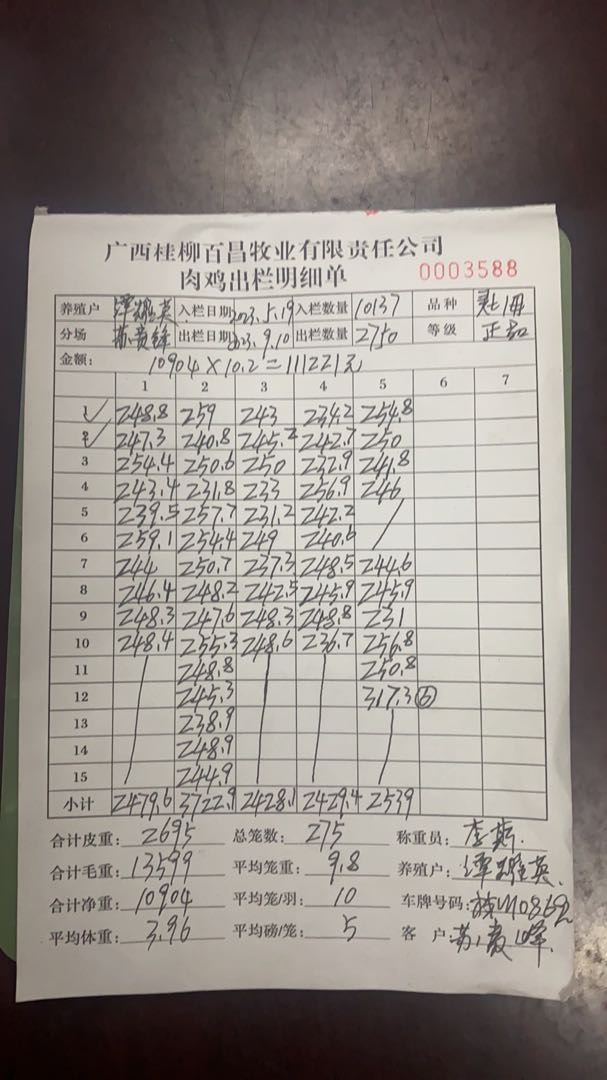 广西桂柳百昌牧业有限责任公司
肉鸡出栏明细单 0003588
养殖户 谭耀英 入栏日期 2023.5.19 入栏数量 10137 品种
分场 出栏日期 2023.9.10 出栏数量 2750 等级 正品
金额: 10904×10.2=111221元
1 2 3 4 5 6 7
1 ✓ 248.8 259 243 234.2 254.8
2 ✓ 247.3 240.8 245.2 242.7 250
3 254.4 250.6 250 232.9 241.8
4 243.4 231.8 233 256.9 246
5 239.5 257.7 231.2 242.2
6 259.1 254.4 249 240.6
7 244 250.7 237.3 248.5 244.6
8 246.4 248.2 242.5 245.9 245.9
9 248.3 247.6 248.3 248.8 231
10 248.4 255.3 248.6 236.7 256.8
11 248.8 250.8
12 245.3 317.3 ⑥
13 238.9
14 248.9
15 244.9
小计 2479.6 3722.9 2428.1 2429.4 2539
合计皮重: 2695 总笼数: 275 称重员: 李斯.
合计毛重: 13599 平均笼重: 9.8 养殖户: 谭耀英.
合计净重: 10904 平均笼/羽: 10 车牌号码:
平均体重: 3.96 平均磅/笼: 5 客 户: